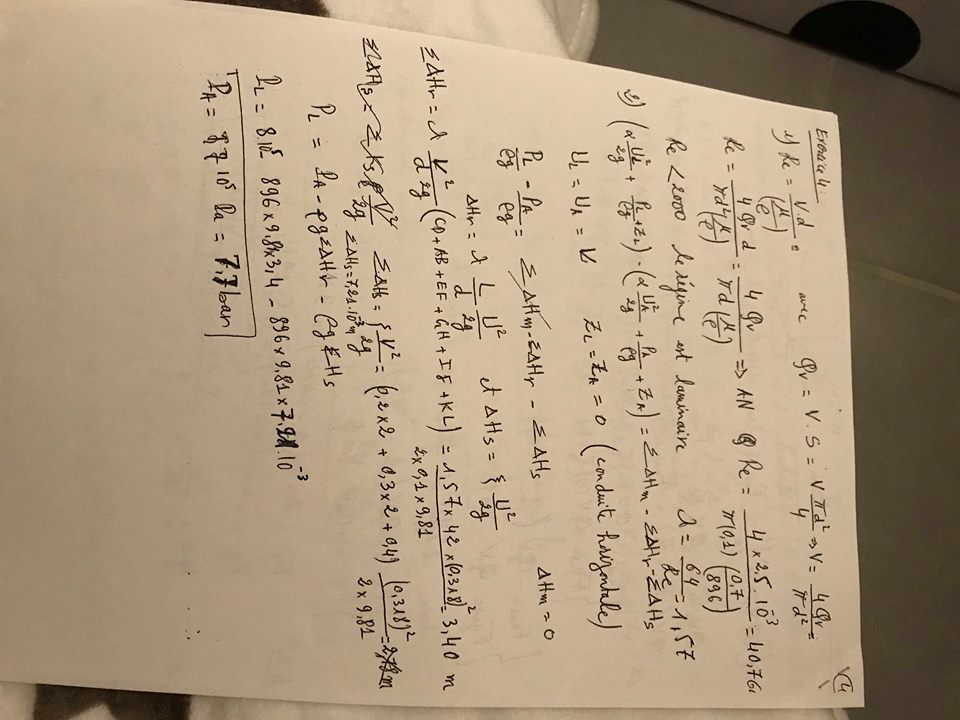 √4
Exercice 4:
1) Re = V.d / (μ/ρ) avec Qv = V.S = V πd²/4 ⇒ V = 4Qv/πd² =
Re = 4 Qv d / πd² (μ/ρ) = 4 Qv / πd (μ/ρ) ⇒ AN Re = 4 × 2,5 . 10⁻³ / π(0,1) (0,7/896) = 40,76
Re < 2000 le régime est laminaire λ = 64/Re = 1,57
2) (α U_L²/2g + P_L/ρg + Z_L) - (α U_A²/2g + P_A/ρg + Z_A) = ΣΔHm - ΣΔHr - ΣΔHs
U_L = U_A = V Z_L = Z_A = 0 (conduite horizontale)
P_L/ρg - P_A/ρg = ΣΔHm - ΣΔHr - ΣΔHs ΔHm = 0
ΔHr = λ L/d U²/2g et ΔHs = ξ U²/2g
ΣΔHr = λ V²/d 2g (CD + AB + EF + GH + IJ + KL) = 1,57 × 42 × (0,318)² / 2 × 0,1 × 9,81 = 3,40 m
ΣΔHs = Σ Ks V²/2g ΣΔHs = ξ V²/2g = (0,2×2 + 0,3×2 + 0,4) (0,318)² / 2 × 9,81
ΣΔHs = 7,21.10⁻³ m
P_L = P_A - ρg ΣΔHr - ρg ΣHs
P_L = 8.10⁵ 896 × 9,81 × 3,4 - 896 × 9,81 × 7,21.10⁻³
P_A = 7,7 10⁵ Pa = 7,7 bar